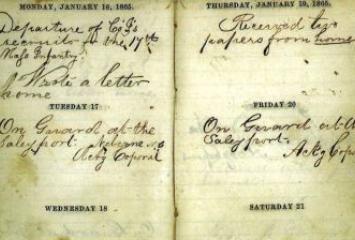 MONDAY, JANUARY 16, 1865.
Departure of Co I's
recruits to the 17th
Mass Infantry.
Wrote a letter
home
TUESDAY 17
On Guard at the
Salesport.
Actg Coporal
WEDNESDAY 18
THURSDAY, JANUARY 19, 1865.
Received two
papers from home
FRIDAY 20
On Guard at th
Salesport.
Actg Copo
SATURDAY 21